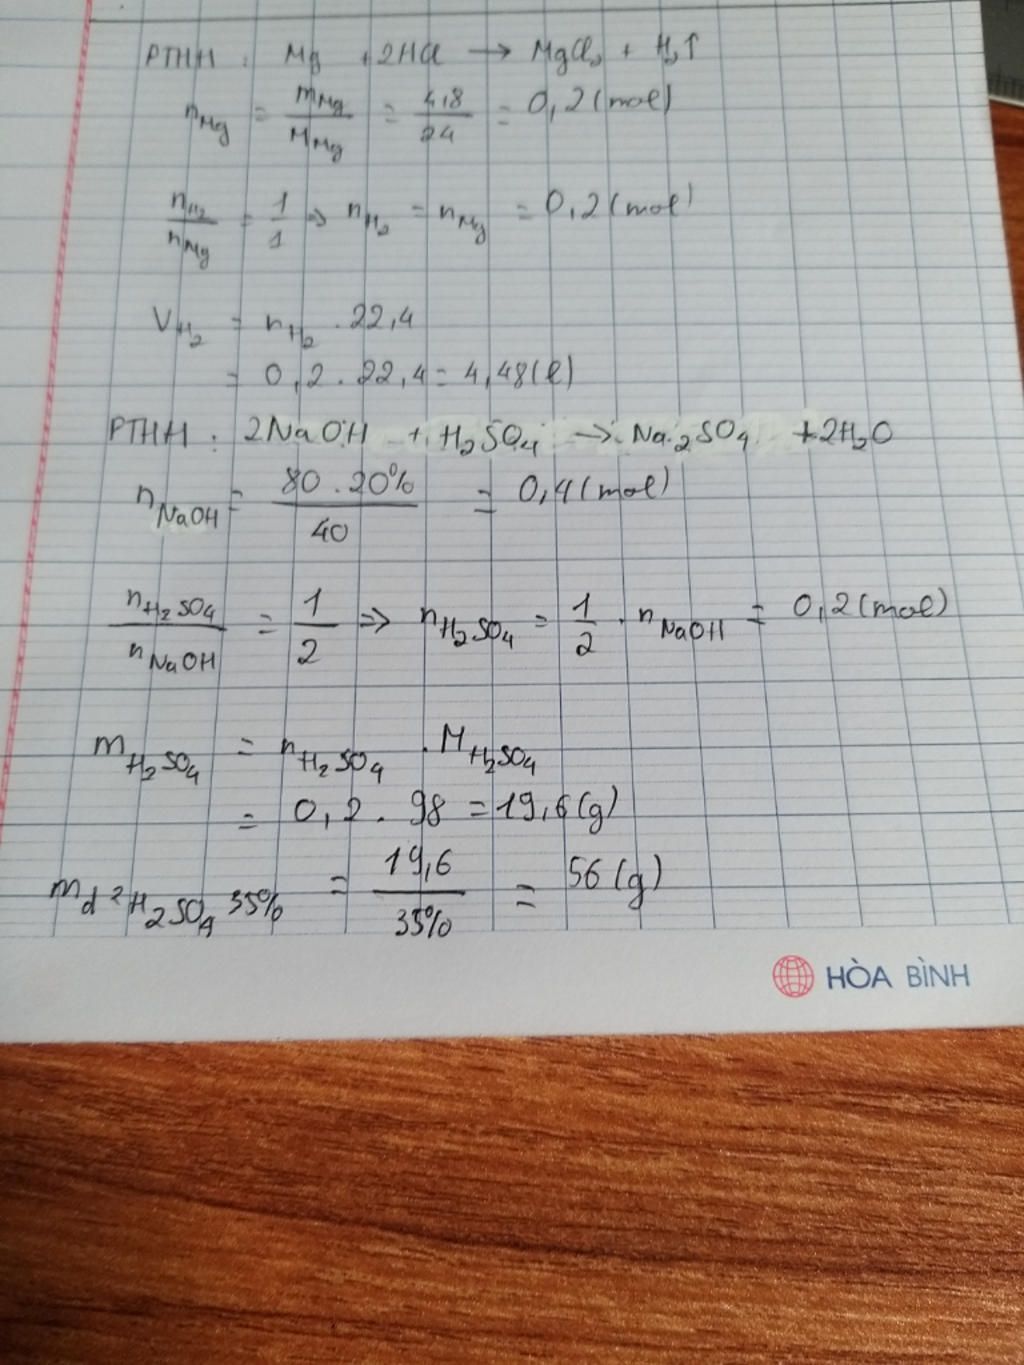 PTHH : Mg + 2HCl → MgCl₂ + H₂↑
nMg = mMg/MMg = 4,8/24 = 0,2 (mol)
nH₂/nMg = 1/1 => nH₂ = nMg = 0,2 (mol)
VH₂ = nH₂ . 22,4
= 0,2 . 22,4 = 4,48 (l)
PTHH : 2NaOH + H₂SO₄ → Na₂SO₄ + 2H₂O
nNaOH = 80 . 20%/40 = 0,4 (mol)
nH₂SO₄/nNaOH = 1/2 => nH₂SO₄ = 1/2 . nNaOH = 0,2 (mol)
mH₂SO₄ = nH₂SO₄ . MH₂SO₄
= 0,2 . 98 = 19,6 (g)
md² H₂SO₄ 35% = 19,6/35% = 56 (g)
HÒA BÌNH